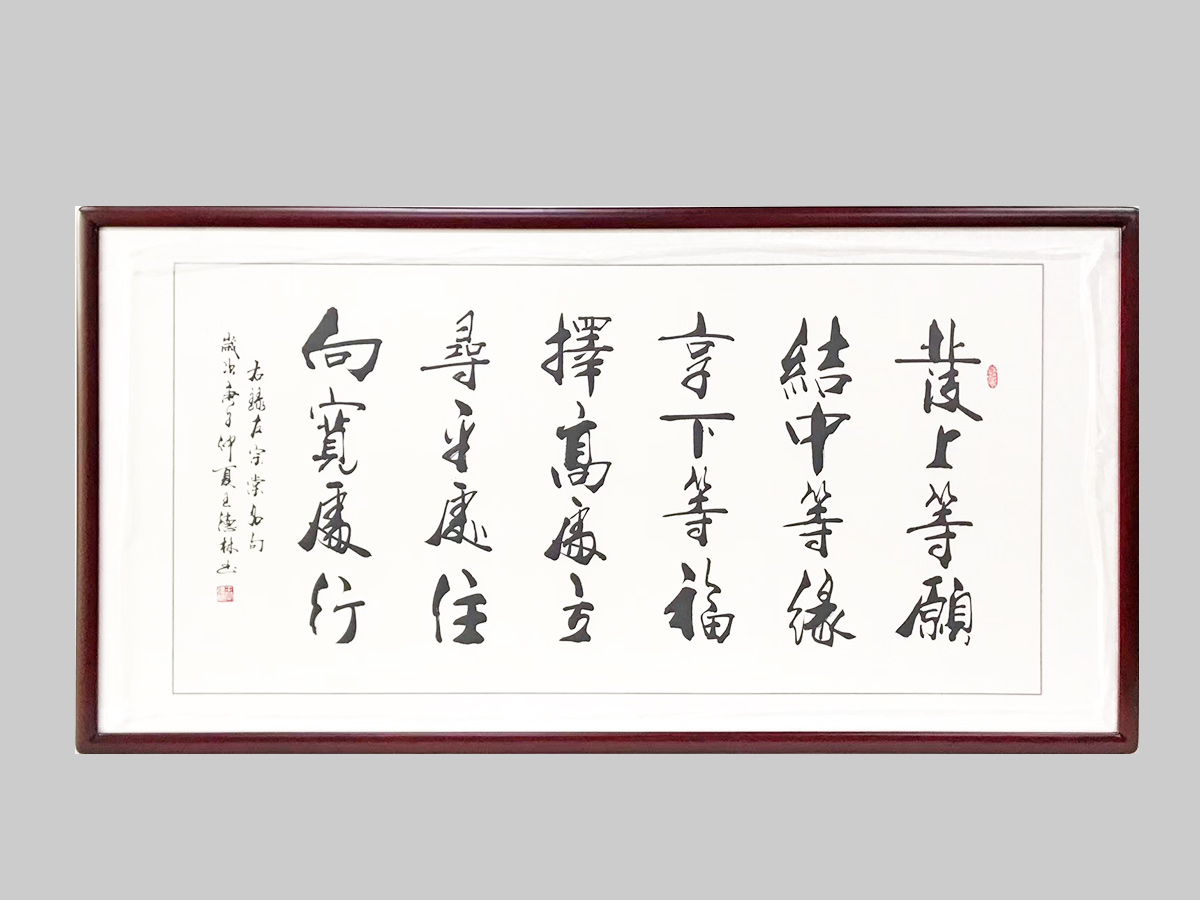 發上等願
結中等緣
享下等福
擇高處立
尋平處住
向寬處行
右錄左宗棠名句
歲次庚子仲夏王德林书